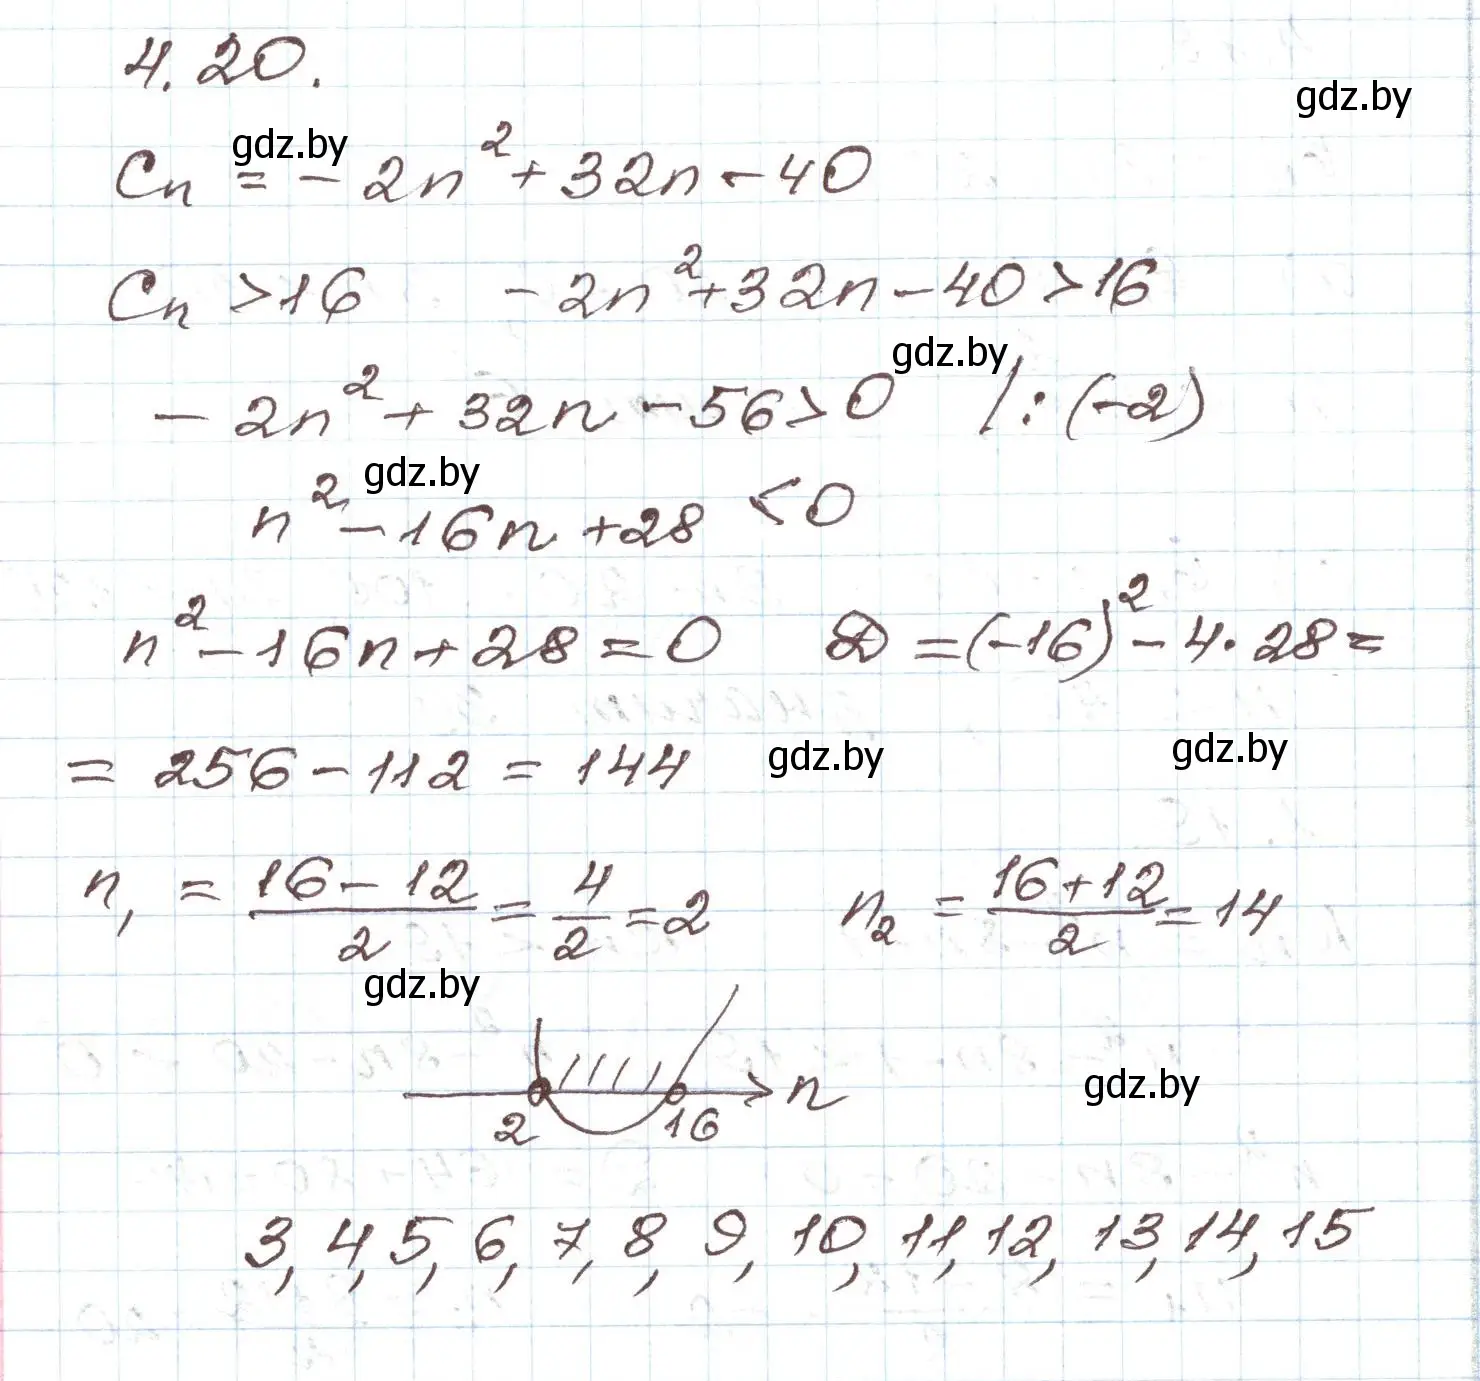 4.20.
gdz.by
gdz.by
Cₙ = - 2n² + 32n - 40
Cₙ > 16   - 2n² + 32n - 40 > 16
gdz.by
- 2n² + 32n - 56 > 0  / : (-2)
gdz.by
n² - 16n + 28 < 0
n² - 16n + 28 = 0   D = (-16)² - 4 · 28 =
= 256 - 112 = 144
gdz.by
gdz.by
n₁ = (16 - 12)/2 = 4/2 = 2   n₂ = (16 + 12)/2 = 14
gdz.by
n
gdz.by
2   16
3, 4, 5, 6, 7, 8, 9, 10, 11, 12, 13, 14, 15